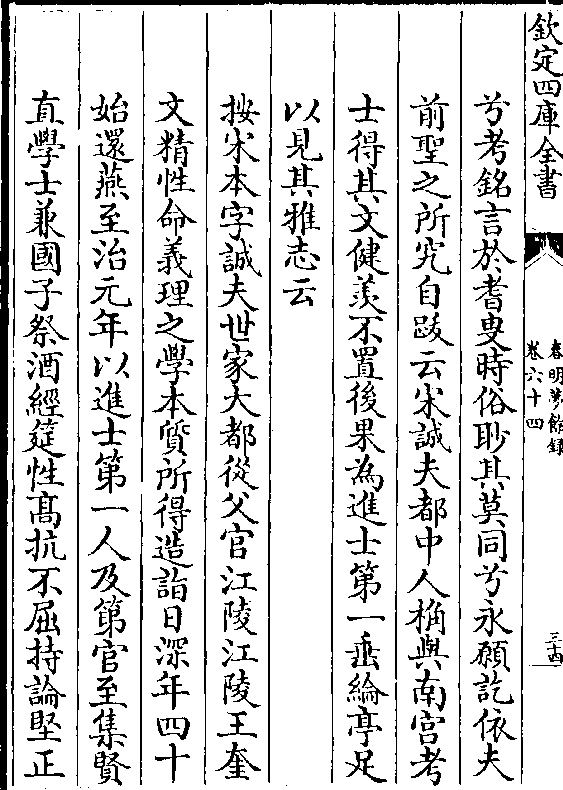 欽定四庫全書
春明夢餘録
卷六十四
三十四
兮考銘言於耆叟時俗眇其莫同兮永願託依夫
前聖之所究自跋云宋誠夫都中人桷與南宫考
士得其文健羨不置後果為進士第一垂綸亭足
以見其雅志云
按宋本字誠夫世家大都從父官江陵江陵王奎
文精性命義理之學本質所得造詣日深年四十
始還燕至治元年以進士第一人及第官至集賢
直學士兼國子祭酒經筵性髙抗不屈持論堅正